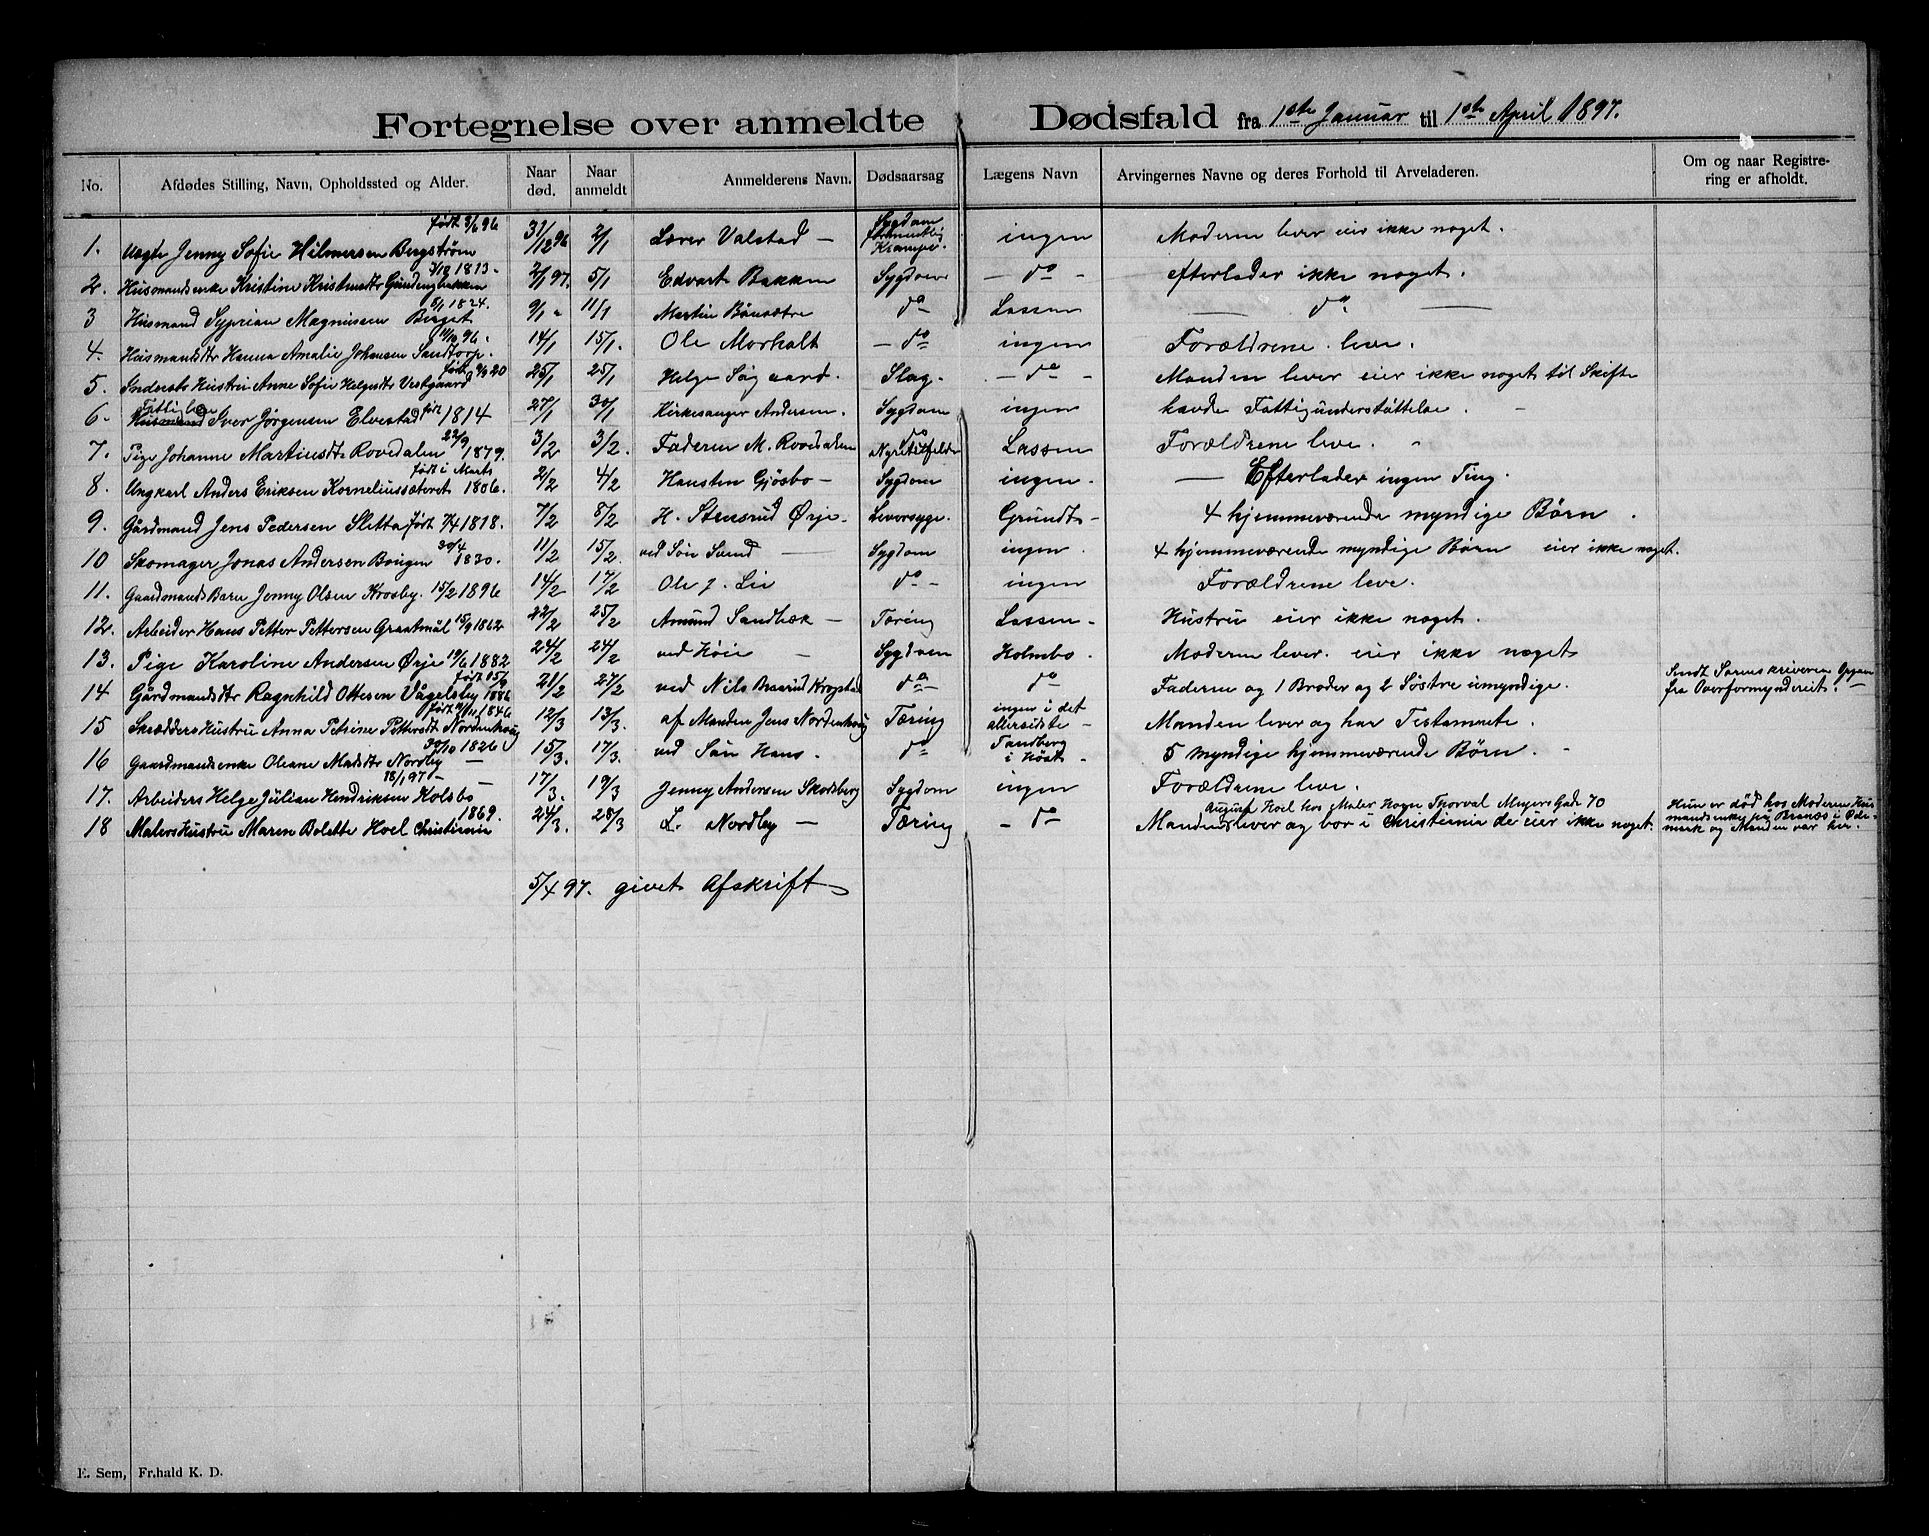 Fortegnelse over anmeldte Dødsfald fra 1ste Januar til 1ste April 1897.
No. Afdødes Stilling, Navn, Opholdssted og Alder. Naar død. Naar anmeldt Anmelderens Navn. Dødsaarsag Lægens Navn Arvingernes Navne og deres Forhold til Arveladeren. Om og naar Registrering er afholdt.
født 3/6 96
1. Uægte Jenny Sofie Hilmersen Bergstrøm 31/12 96 2/1 Lærer Valstad — Sygdom Krampe. ingen Moderen lever eier ikke noget.
2. Husmandsenke Kristine Kristensdtr 1813 2/1 97. 5/1 Edvart Bakken Sygdom — do - efterlader ikke noget.
3 Husmand Syprian Magnussen Berget 5/1 1824. 9/1 - 11/1 Martin Bønsætre do Lassen — do —
4. Husmandsdtr Hanna Amalie Johansen Sandtorp. 96. 14/1 15/1. Ole Morholt — do ingen Forældrene leve.
5. Inderst Hustru Anne Sofie Helgesdtr Vestgaard født 20 25/1 25/1 Helge Søgaard. Slag. — do - Manden lever eier ikke noget til Skifte
6. Fattiglem Iver Jørgensen Elvestad født 1814 27/1 30/1 Kirkesanger Andersen. Sygdom ingen havde Fattigunderstøttelse.
7. Pige Johanne Martinusdtr Rovedalen 22/9 1879. 3/2 3/2. Faderen M. Rovedalen do Nyretilfelde Lassen Forældrene leve.
8. Ungkarl Anders Eriksen Korneliussæteret født i Marts 1806. 2/2 4/2 Hansten Gjøsbo — Sygdom ingen. — Efterlader ingen Ting.
9. Gårdmand Jens Pedersen Sletta født 7/4 1818. 7/2 8/2 H. Stensrud Ørje. Leversyge. Grundt — 4 hjemmeværende myndige Børn.
10 Skomager Jonas Andersen Bøngen 30/4 1830. 11/2 15/2. ved Søn Svend — Sygdom ingen. 4 hjemmeværende myndige Børn eier ikke noget.
11. Gaardmands Barn Jenny Olsen Krosby. 15/2 1896 14/2 17/2 Ole J. Lie do - ingen Forældrene leve.
12. Arbeider Hans Petter Pettersen Graatmål 15/9 1862 22/2 25/2 Amund Sandbæk — Tæring Lassen - Hustru eier ikke noget.
13. Pige Karoline Andersen Ørje 19/6 1882 24/2 24/2 ved Høie — Sygdom Holmbo. Moderen lever. eier ikke noget
14 Gårdmandsdtr Ragnhild Ottesen Vågelsby født 15/9 1886 21/2 27/2 ved Nils Braarud Kropstad do — do Faderen og 1 Broder og 2 Søstre umyndige. Sendt Sorenskriveren Opgave fra Overformynderiet. —
15 Skrædders Hustru Anna Petrine Pettersdt Nordenhaug født 11 1846 12/3 13/3. af Manden Jens Nordenhaug Tæring ingen i det allersidste — Manden lever og har Testamente.
16 Gaardmandsenke Oleane Madsdtr Nordby 30/10 1826 — 15/3. 17/3. ved Søn Hans. do Sandberg i Høst. 5 myndige hjemmeværende Børn.
17. Arbeiders Helge Julian Hendriksen Kolsbo 18/1 97 — 17/3. 19/3 Jenny Andersen Skodsberg Sygdom ingen Forældrene leve.
18 Malers Hustru Maren Bolette Hoel Christiania 1869. 24/3. 28/3 L. Nordby — Tæring — do Manden August Hoel hos Maler Hagn Thorval Meyers Gade 70 lever og bor i Christiania de eier ikke noget. Hun er død hos Moderen Husmandsenke på Brenæs i Ødemark og Manden var her.
5/4 97. givet Afskrift
E. Sem, Fr.hald K. D.